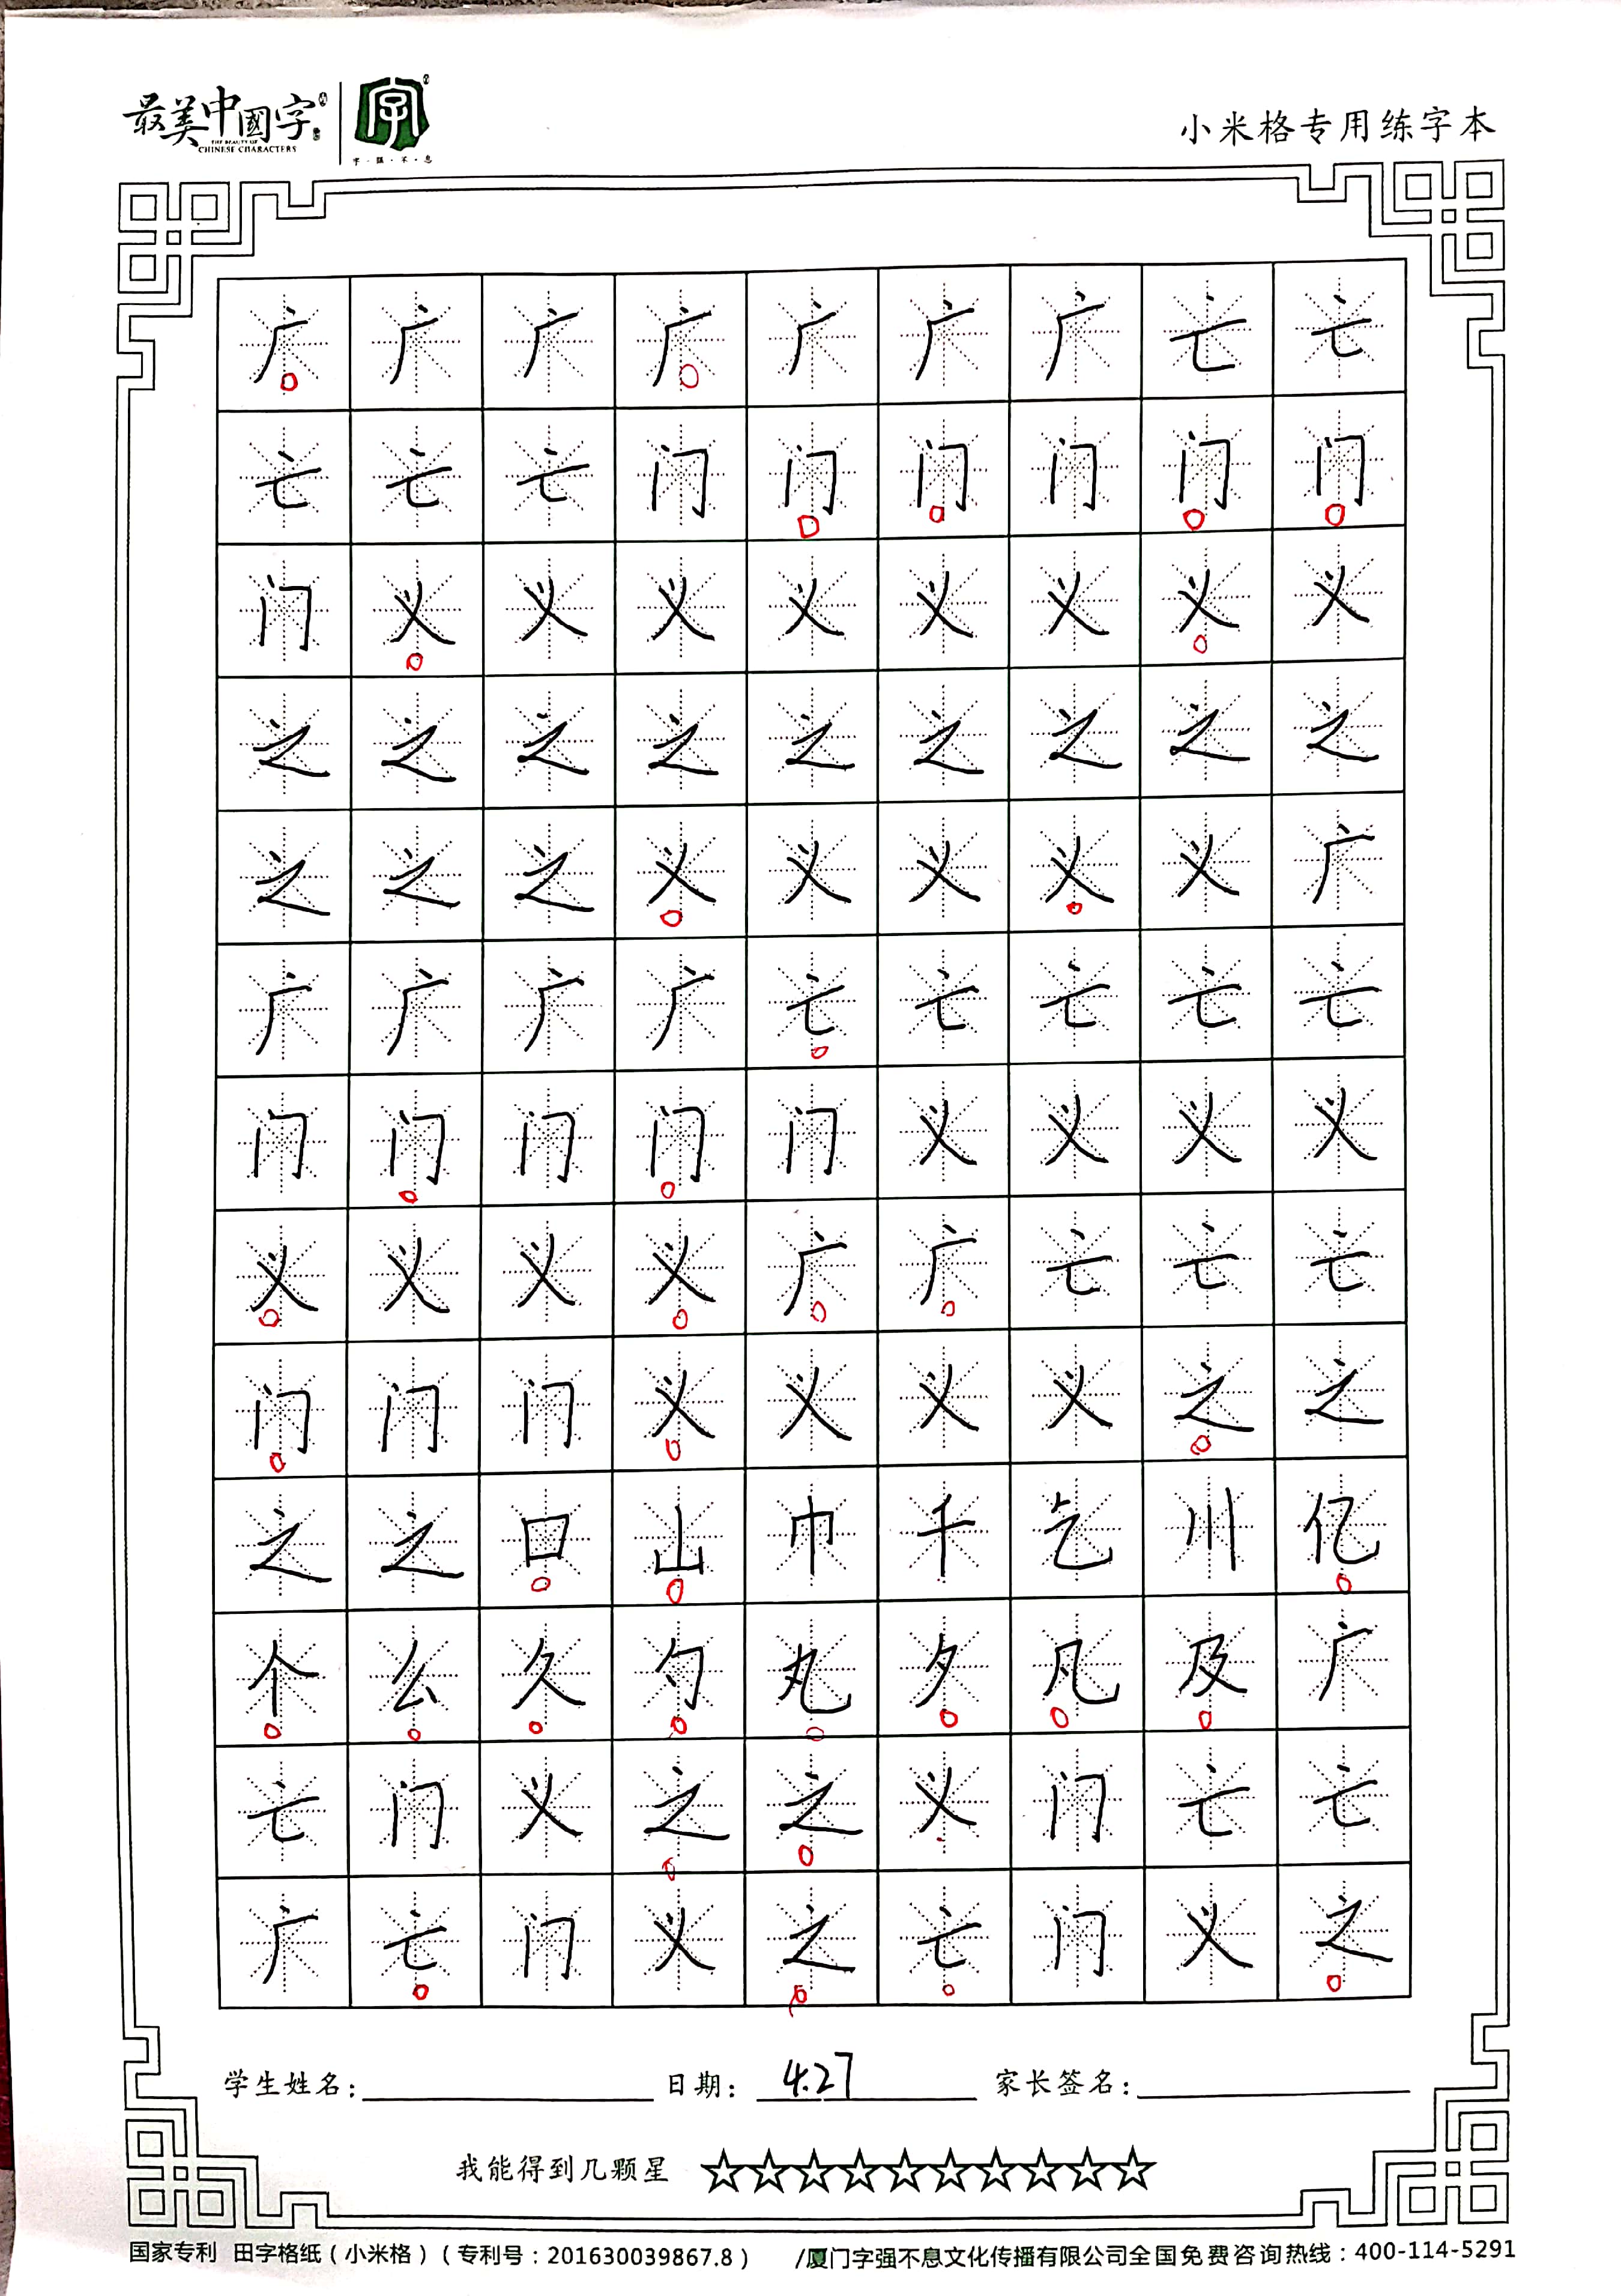 最美中國字
THE BEAUTY OF
CHINESE CHARACTERS
字
字·强·不·息
小米格专用练字本
广 广 广 广 广 广 广 亡 亡
亡 亡 亡 门 门 门 门 门 门
门 义 义 义 义 义 义 义 义
之 之 之 之 之 之 之 之 之
之 之 之 义 义 义 义 义 广
广 广 广 广 亡 亡 亡 亡 亡
门 门 门 门 门 义 义 义 义
义 义 义 义 广 广 亡 亡 亡
门 门 门 义 义 义 义 之 之
之 之 口 山 巾 千 乞 川 亿
个 么 久 勺 丸 夕 凡 及 广
亡 门 义 之 之 义 门 亡 亡
广 亡 门 义 之 亡 门 义 之
学生姓名: 日期: 4.27 家长签名:
我能得到几颗星 ☆☆☆☆☆☆☆☆☆☆
国家专利 田字格纸(小米格)(专利号:201630039867.8) /厦门字强不息文化传播有限公司全国免费咨询热线:400-114-5291